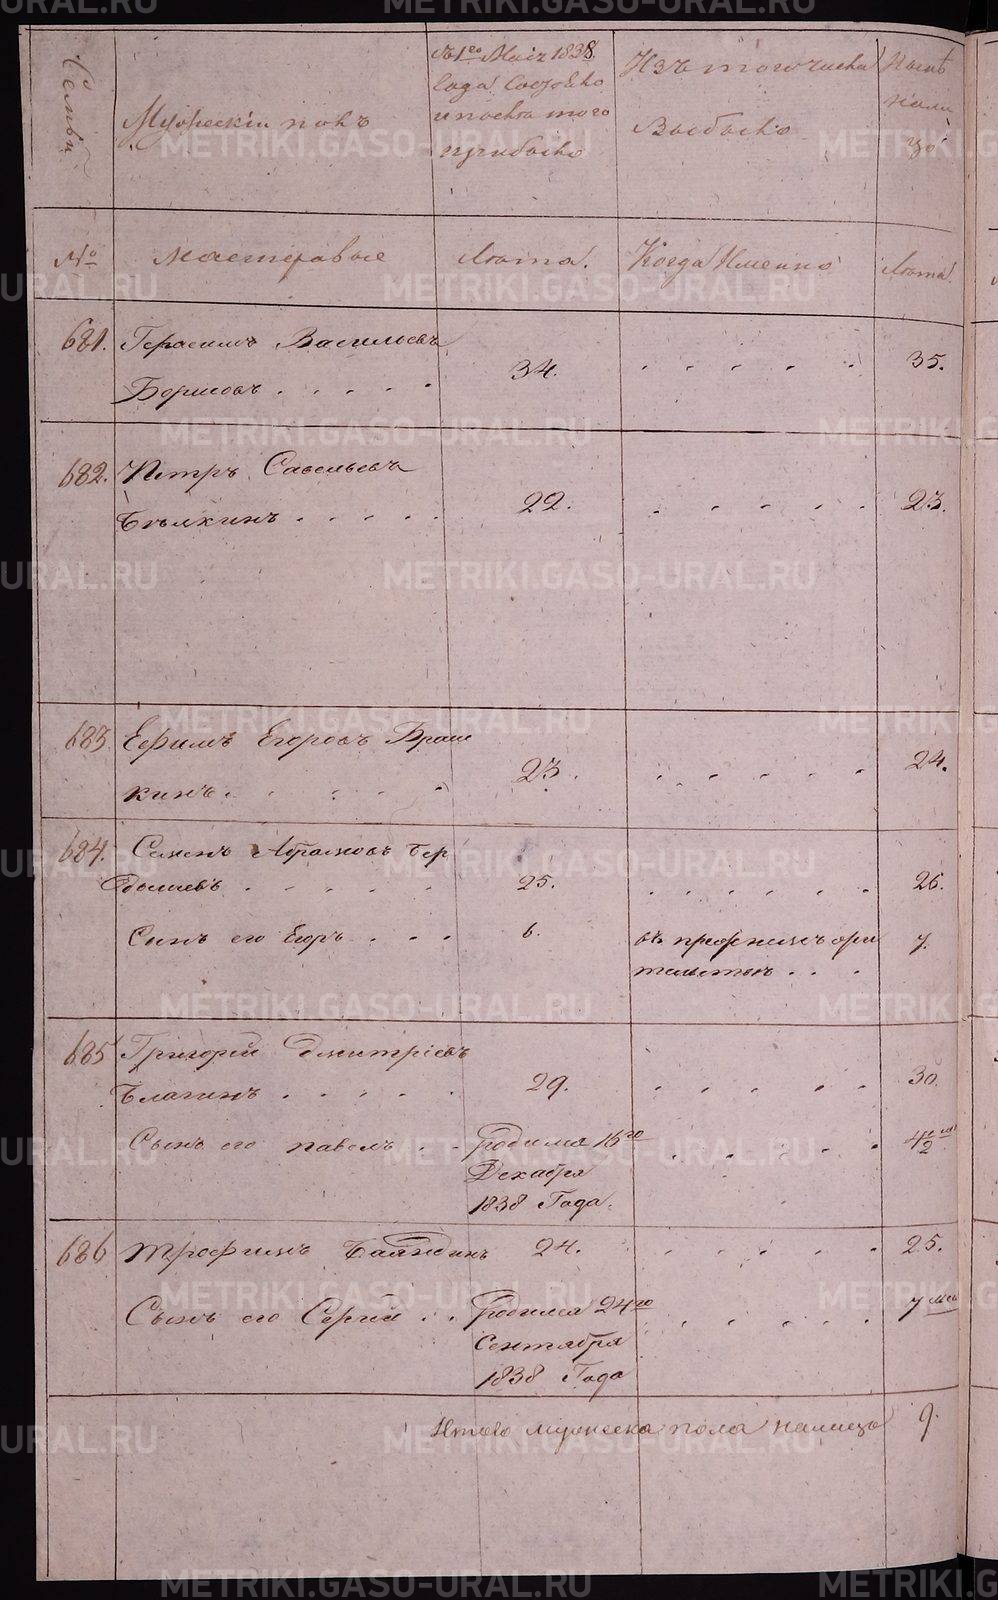 Семьи
Мужескій полъ
Къ 1го Маія 1838
Года Состояло
и послѣ того
прибыло
Изъ того числа
Выбыло
Нынѣ
нали
цо
№
мастеровые
Лѣта.
Когда Именно
Лѣта
681. Герасимъ Васильевъ
Борисовъ . . . . . 34. . . . . . 35.
682. Петръ Савельевъ
Бѣлкинъ . . . . . 22. . . . . . 23.
683. Ефимъ Егоровъ Брош
кинъ . . . . . 23. . . . . . 24.
684. Семенъ Абрамовъ Бер
. . . . . 25. . . . . . . 26.
Сынъ его Егоръ . . . 6. 7.
685 Григорей Дмитріевъ
Благинъ . . . . . 29. . . . . . 30.
Сынъ его павелъ . . родился 16го . . . . .
Декабря
1838 Года.
686 Трофимъ Баяндинъ 24. . . . . . 25.
Сынъ его Сергій . . Родился 24го . . . . . 7 мѣс
Сентября
1838 Года
Итого мужеска пола налицо 9.
METRIKI.GASO-URAL.RU